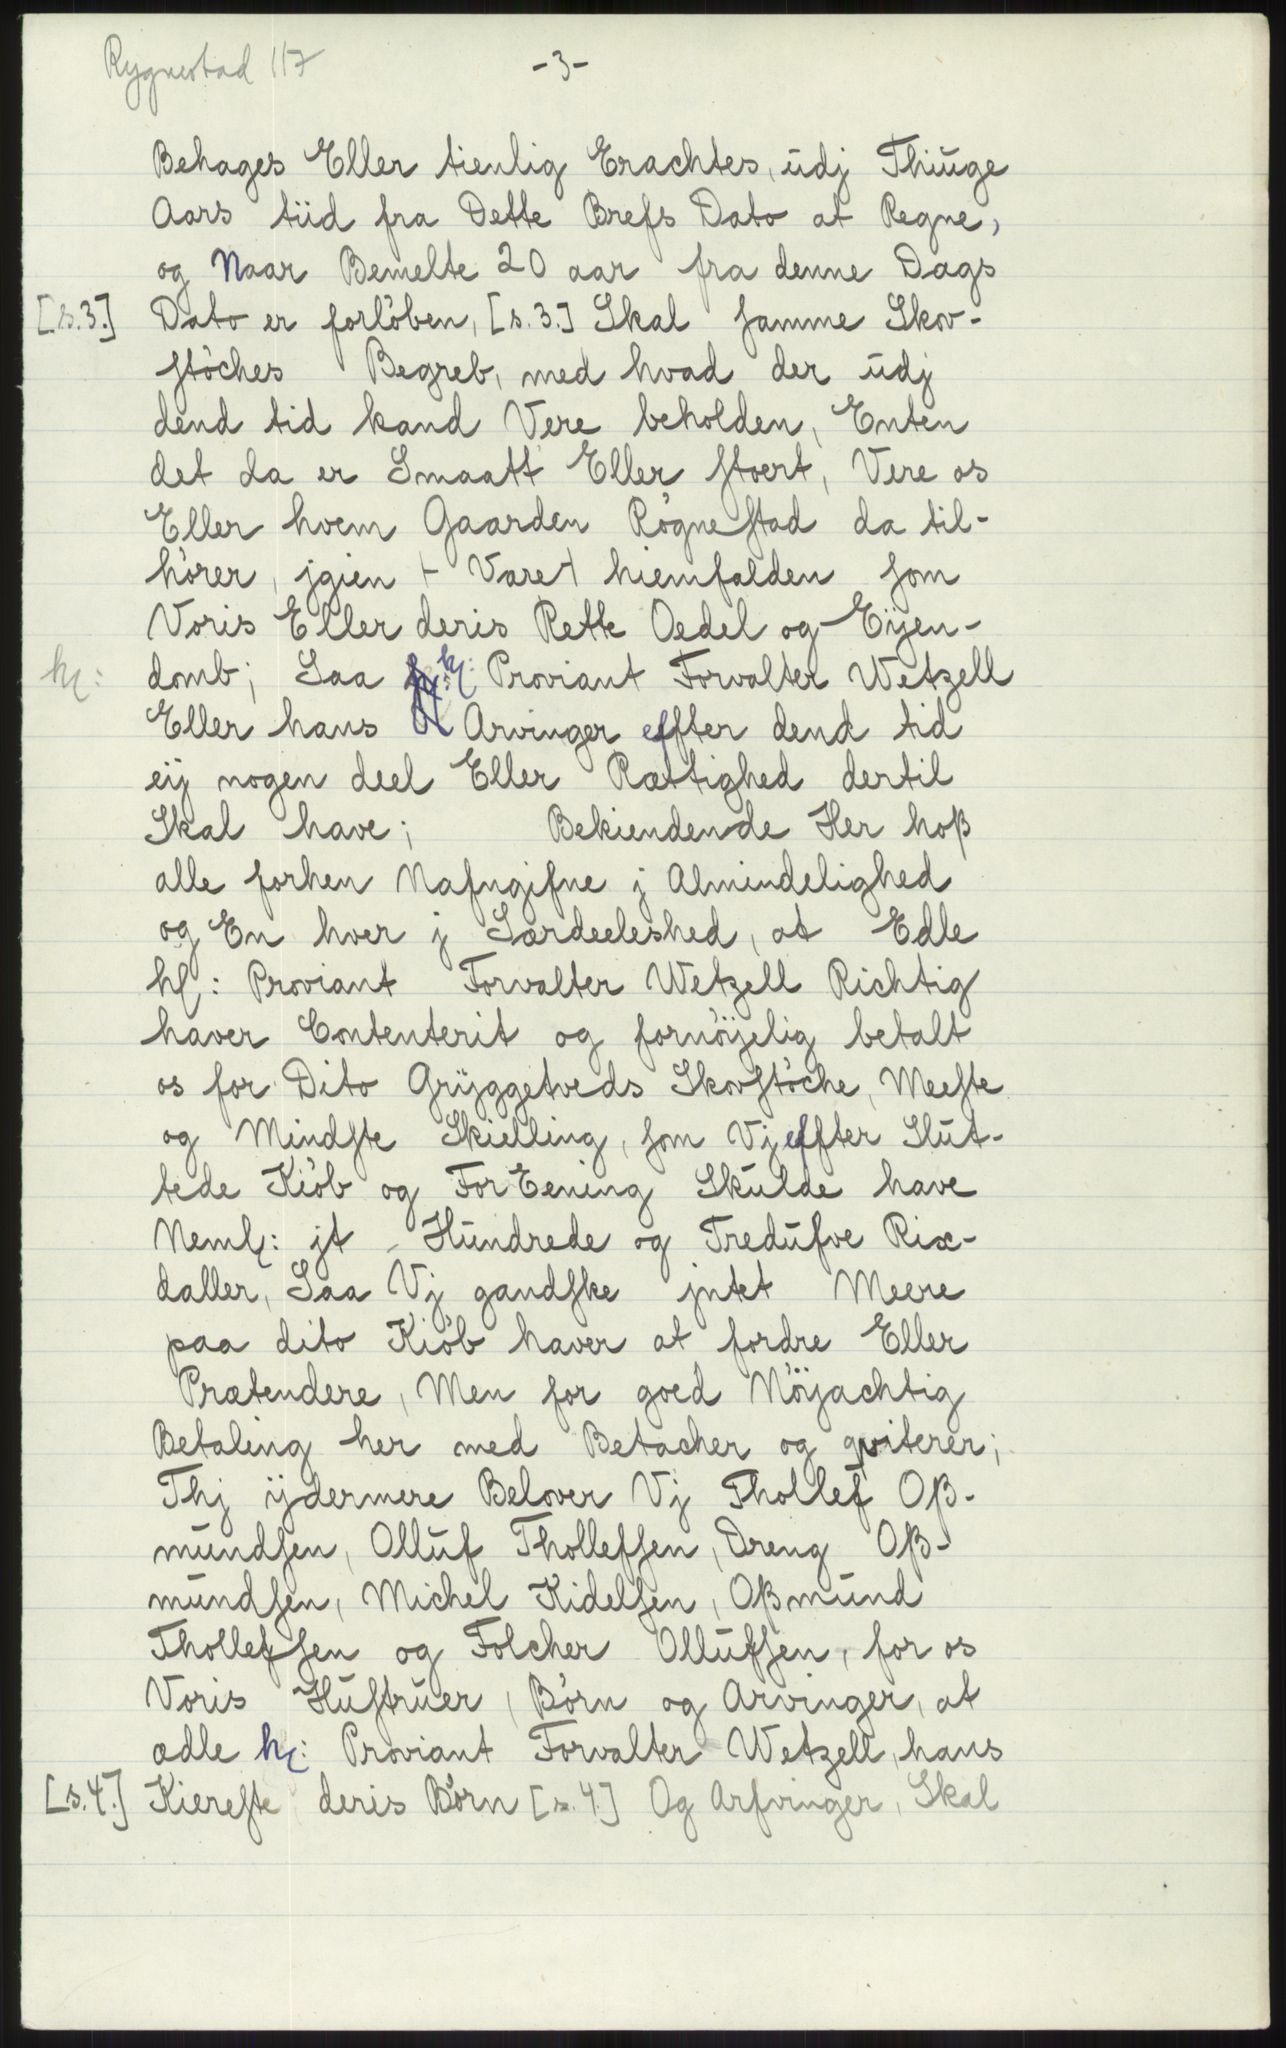 Rygnestad 117
-3-
Behages Eller tienlig Erachtes, udj Thiuge
Aars tiid fra Dette Brefs Dato at Regne,
og Naar Bemelte 20 aar fra denne Dags
[s.3.] Dato er forlöben, [s.3.] Skal samme Skov-
stöches Begreb, med hvad der udj
dend tid kand Vere beholden, Enten
det da er Smaatt Eller stoert, Vere os
Eller hvem Gaarden Rögnestad da til-
hörer, jgien + Være + hiemfalden som
Voris Eller deris Rette Oedel og Eijen-
h: domb; Saa h: Proviant Forvalter Wetzell
Eller hans Arvinger effter dend tid
eij nogen deel Eller Rættighed dertil
Skal have; Bekiendende Her hoß
alle forhen Nafngifne j Almindelighed
og En hver j Særdeeleshed, at Edle
h: Proviant Forvalter Wetzell Richtig
haver Contenterit og fornöjelig betalt
os for Dito Grÿggetveds Skovstöche, Meeste
og Mindste Skielling, som Vj effter Slut-
tede Kiöb og ForEening Skulde have
Neml: jt Hundrede og Tredufve Rix-
daller, Saa Vj gandske jntet Meere
paa dito Kiöb haver at fordre Eller
Prætendere, Men for goed Nöjachtig
Betaling her med Betacher og qviterer;
Thj ÿdermere Belover Vj Thollef Oß-
mundsen, Olluf Thollefsen, Dreng Oß-
mundsen, Michel Kidelsen, Oßmund
Thollefsen og Folcher Ollufsen, for os
Voris Hustruer, Börn og Arvinger, at
ædle h: Proviant Forvalter Wetzell, hans
[s.4.] Kiereste deris Börn [s.4.] Og Arfvinger, Skal